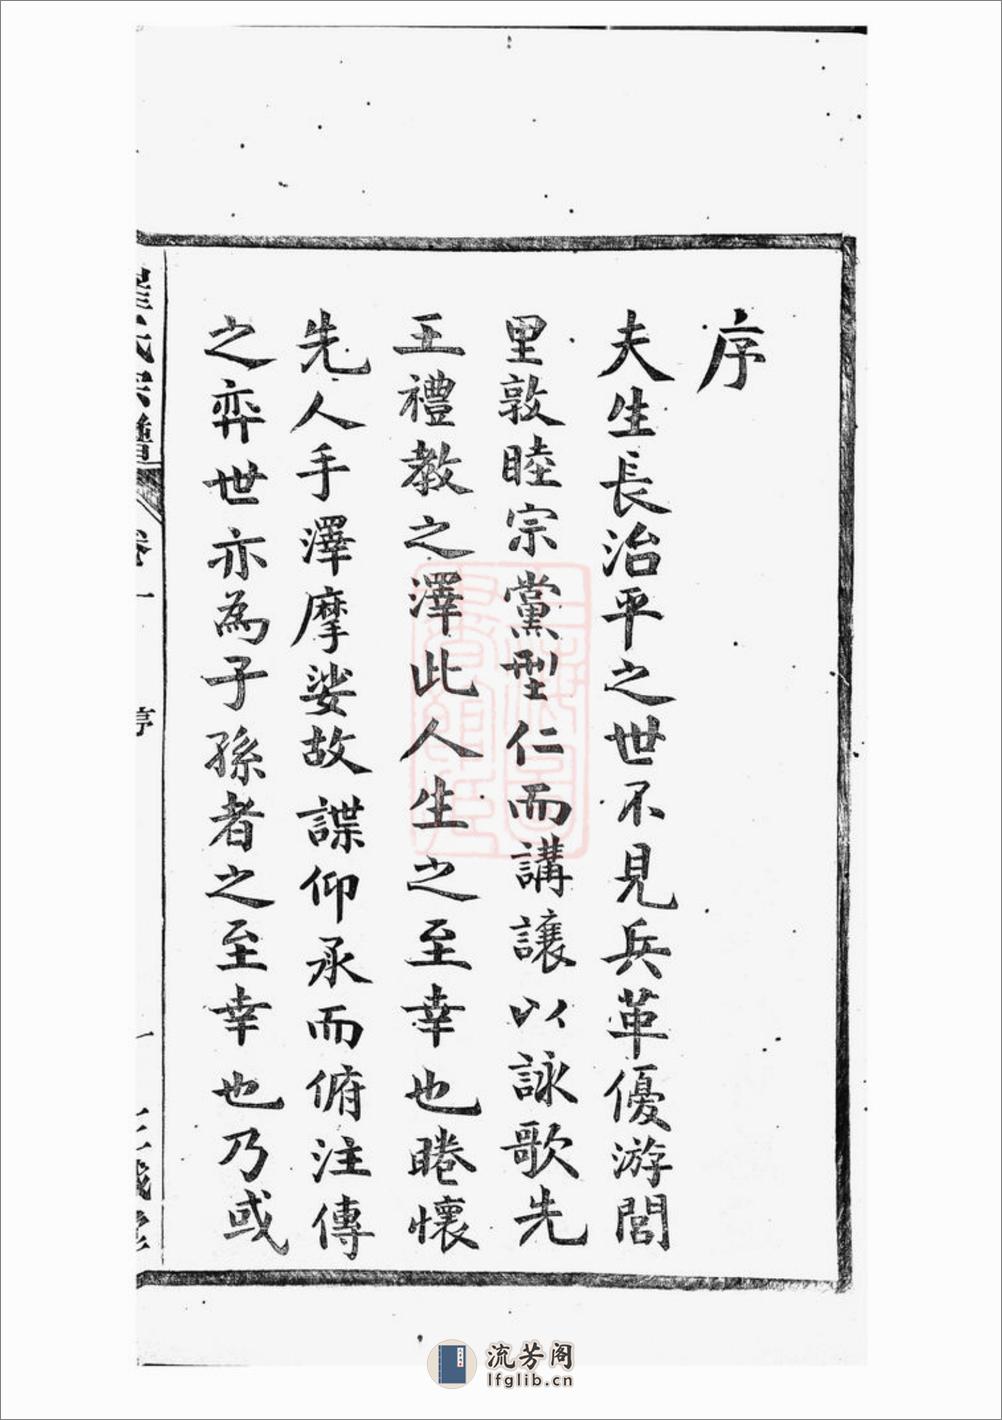 序
夫生長治平之世不見兵革優游閭
里敦睦宗黨型仁而講讓以詠歌先
王禮教之澤此人生之至幸也睠懷
先人手澤摩娑故諜仰承而俯注傳
之弈世亦為子孫者之至幸也乃或
氏宗譜
卷一
序
一
流芳阁
lfglib.cn